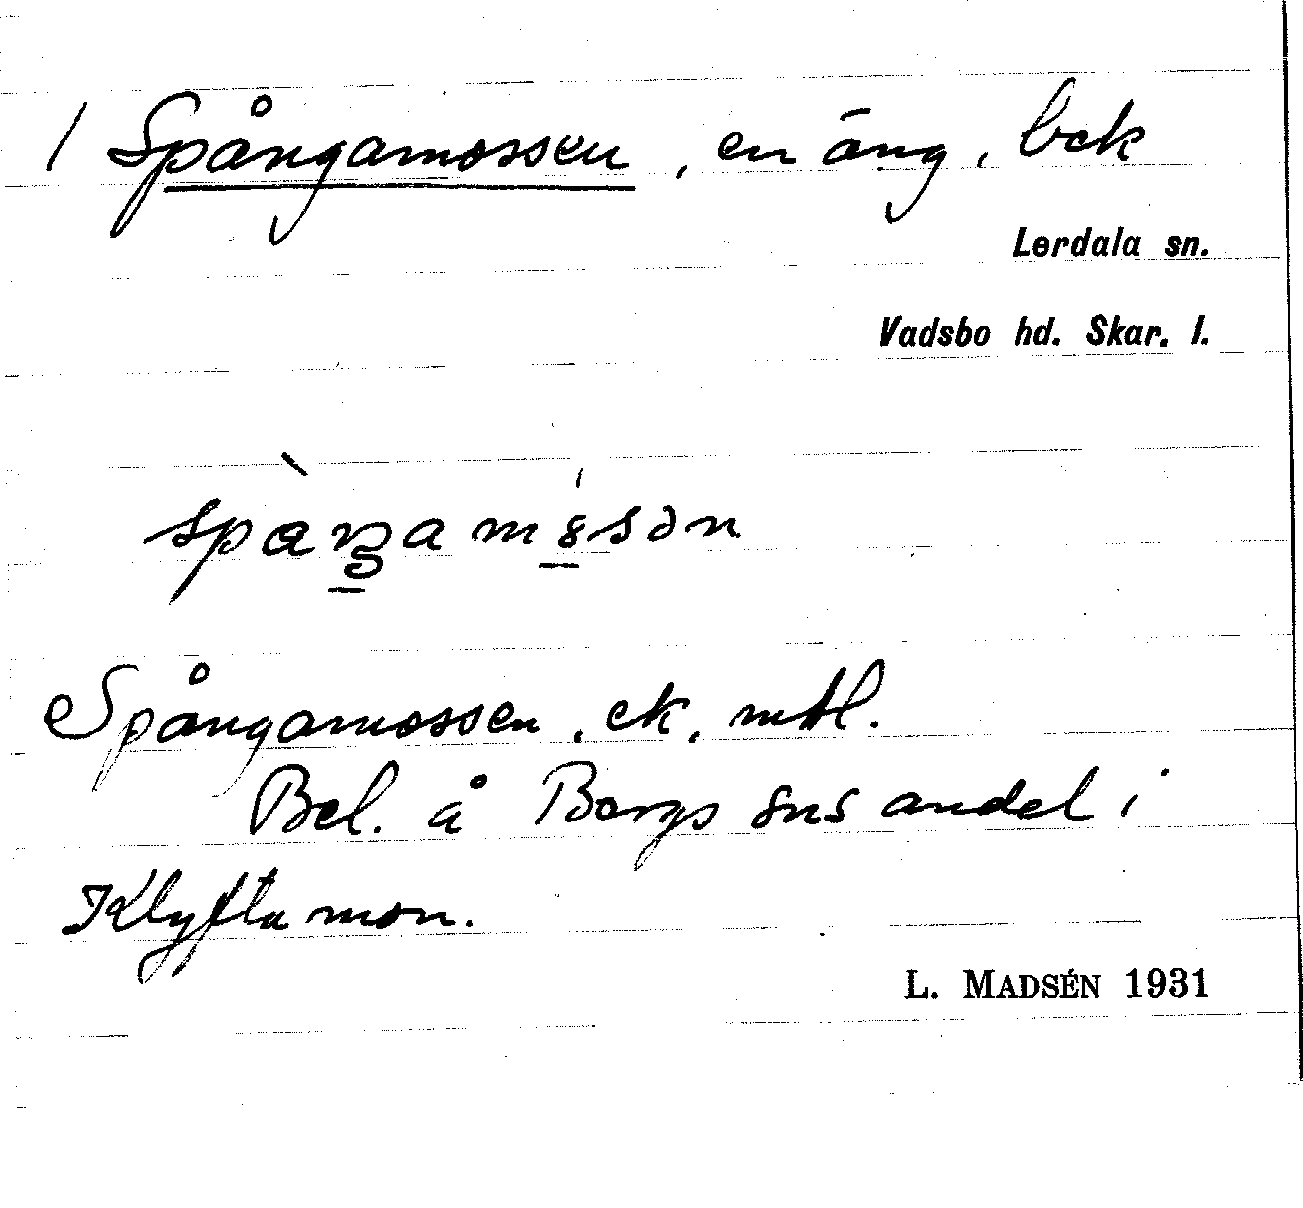 1 Spångamossen, en äng, bek
Lerdala sn.
Vadsbo hd. Skar. l.
Spångamossen, ek, mtl.
Bel. å Bergs sns andel i
Klyftamon.
L. MADSÉN 1931